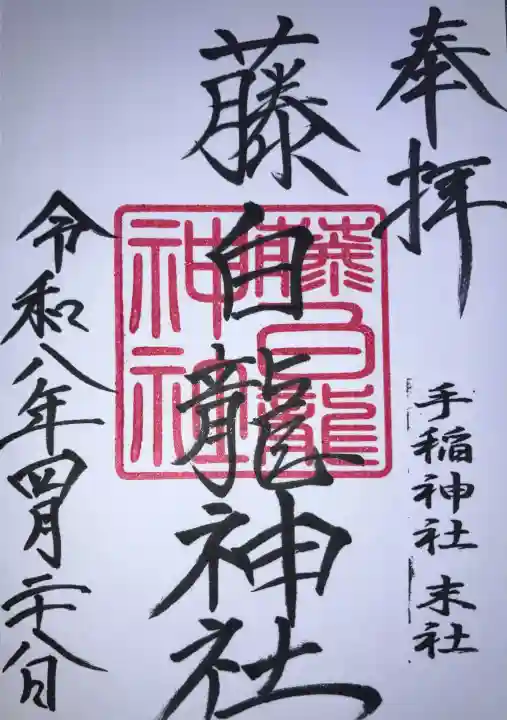 奉拝
手稲神社 末社
藤白龍神社
藤白龍
神社
令和八年四月二十八日